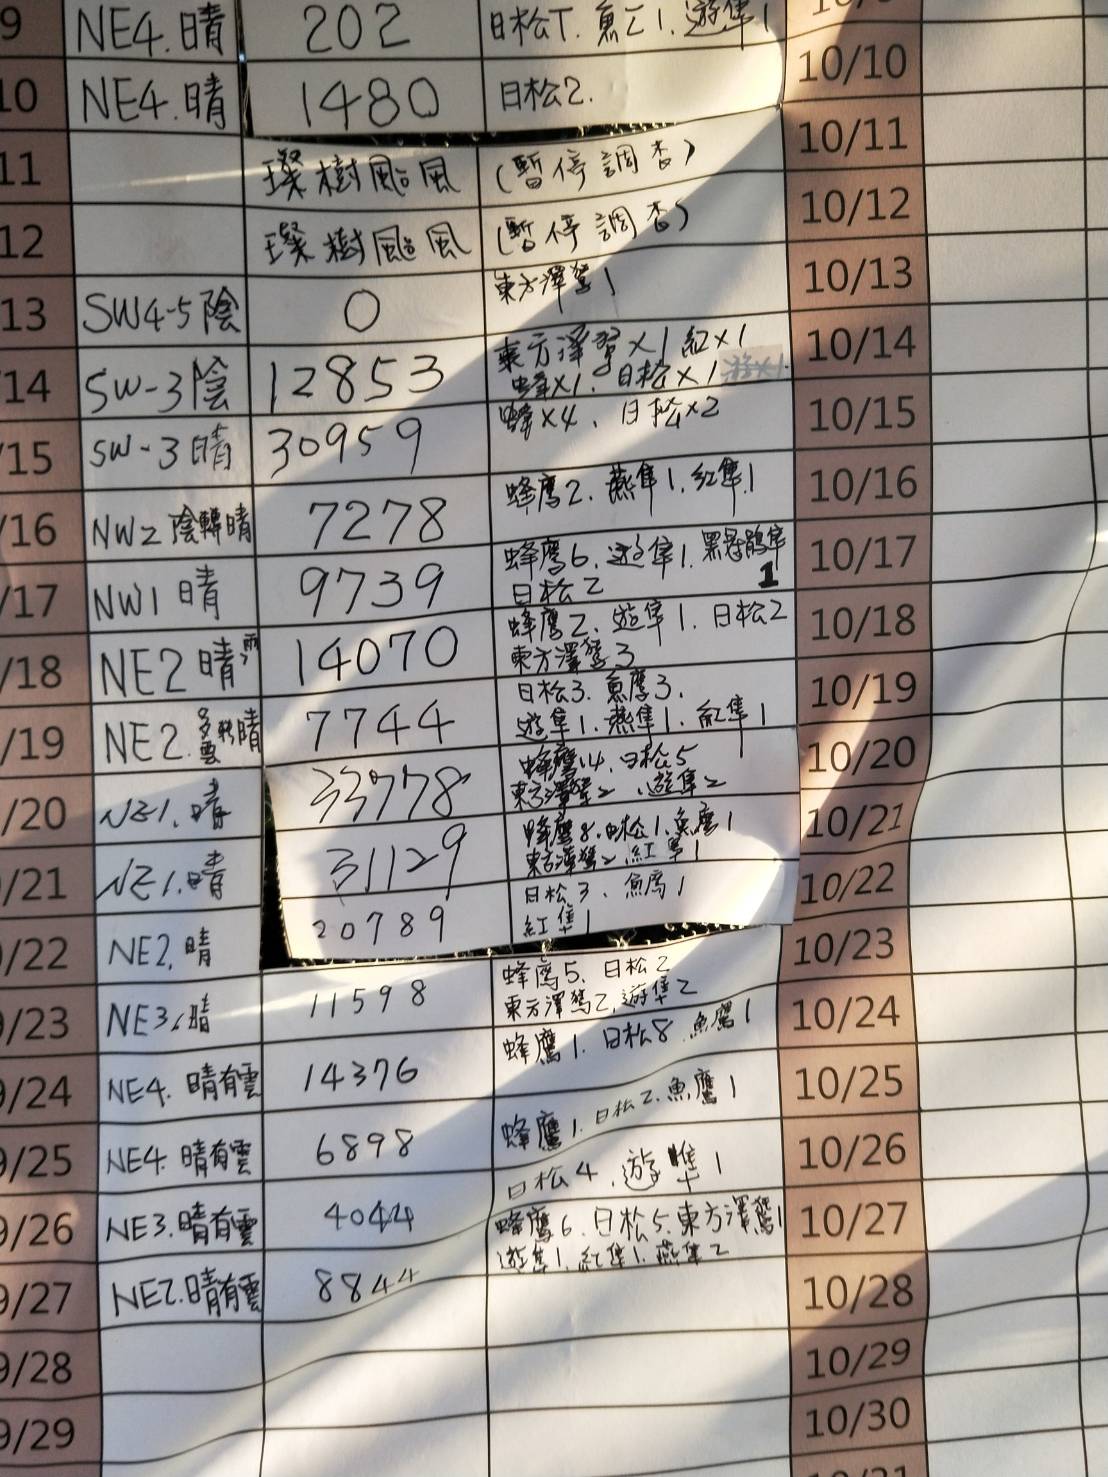 9 NE4.晴 202 日松1.魚1.遊隼1
10 NE4.晴 1480 日松2. 10/10
11 璨樹颱風 (暫停調查) 10/11
12 璨樹颱風 (暫停調查) 10/12
13 SW4-5陰 0 東方澤鵟1 10/13
/14 SW-3陰 12853 東方澤鵟x1 紅x1 10/14
蜂x1. 日松x1 游x1
/15 SW-3晴 30959 蜂x4、日松x2 10/15
/16 NW2 陰轉晴 7278 蜂鷹2. 燕隼1. 紅隼1 10/16
/17 NW1 晴 9739 蜂鷹6. 遊隼1. 黑 1 10/17
日松2
/18 NE2 晴 14070 蜂鷹2. 遊隼1. 日松2 10/18
東方澤鵟3
/19 NE2. 多雲 晴 7744 日松3. 魚鷹3. 10/19
遊隼1. 燕隼1. 紅隼1
/20 NE1. 晴 33778 蜂鷹14. 日松5 10/20
東方澤鵟2、遊隼2
/21 NE1.晴 31129 蜂鷹8. 日松1. 魚鷹1 10/21
東方澤鵟2. 紅隼1
/22 NE2. 晴 20789 日松3、魚鷹1 10/22
紅隼1
/23 NE3.晴 11598 蜂鷹5. 日松2 10/23
東方澤鵟2. 遊隼2
9/24 NE4. 晴有雲 14376 蜂鷹1. 日松8 魚鷹1 10/24
9/25 NE4. 晴有雲 6898 蜂鷹1. 日松2. 魚鷹1 10/25
9/26 NE3.晴有雲 4044 日松4、遊隼1 10/26
9/27 NE2.晴有雲 8844 蜂鷹6. 日松5. 東方澤鵟1 10/27
遊隼1. 紅隼1. 燕隼2
9/28 10/28
9/29 10/29
10/30